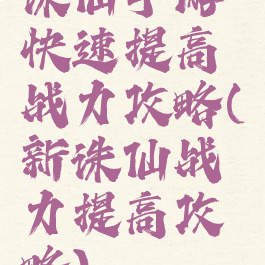 诛仙手游
快速提高
战力攻略(
新诛仙战
力提高攻
略)